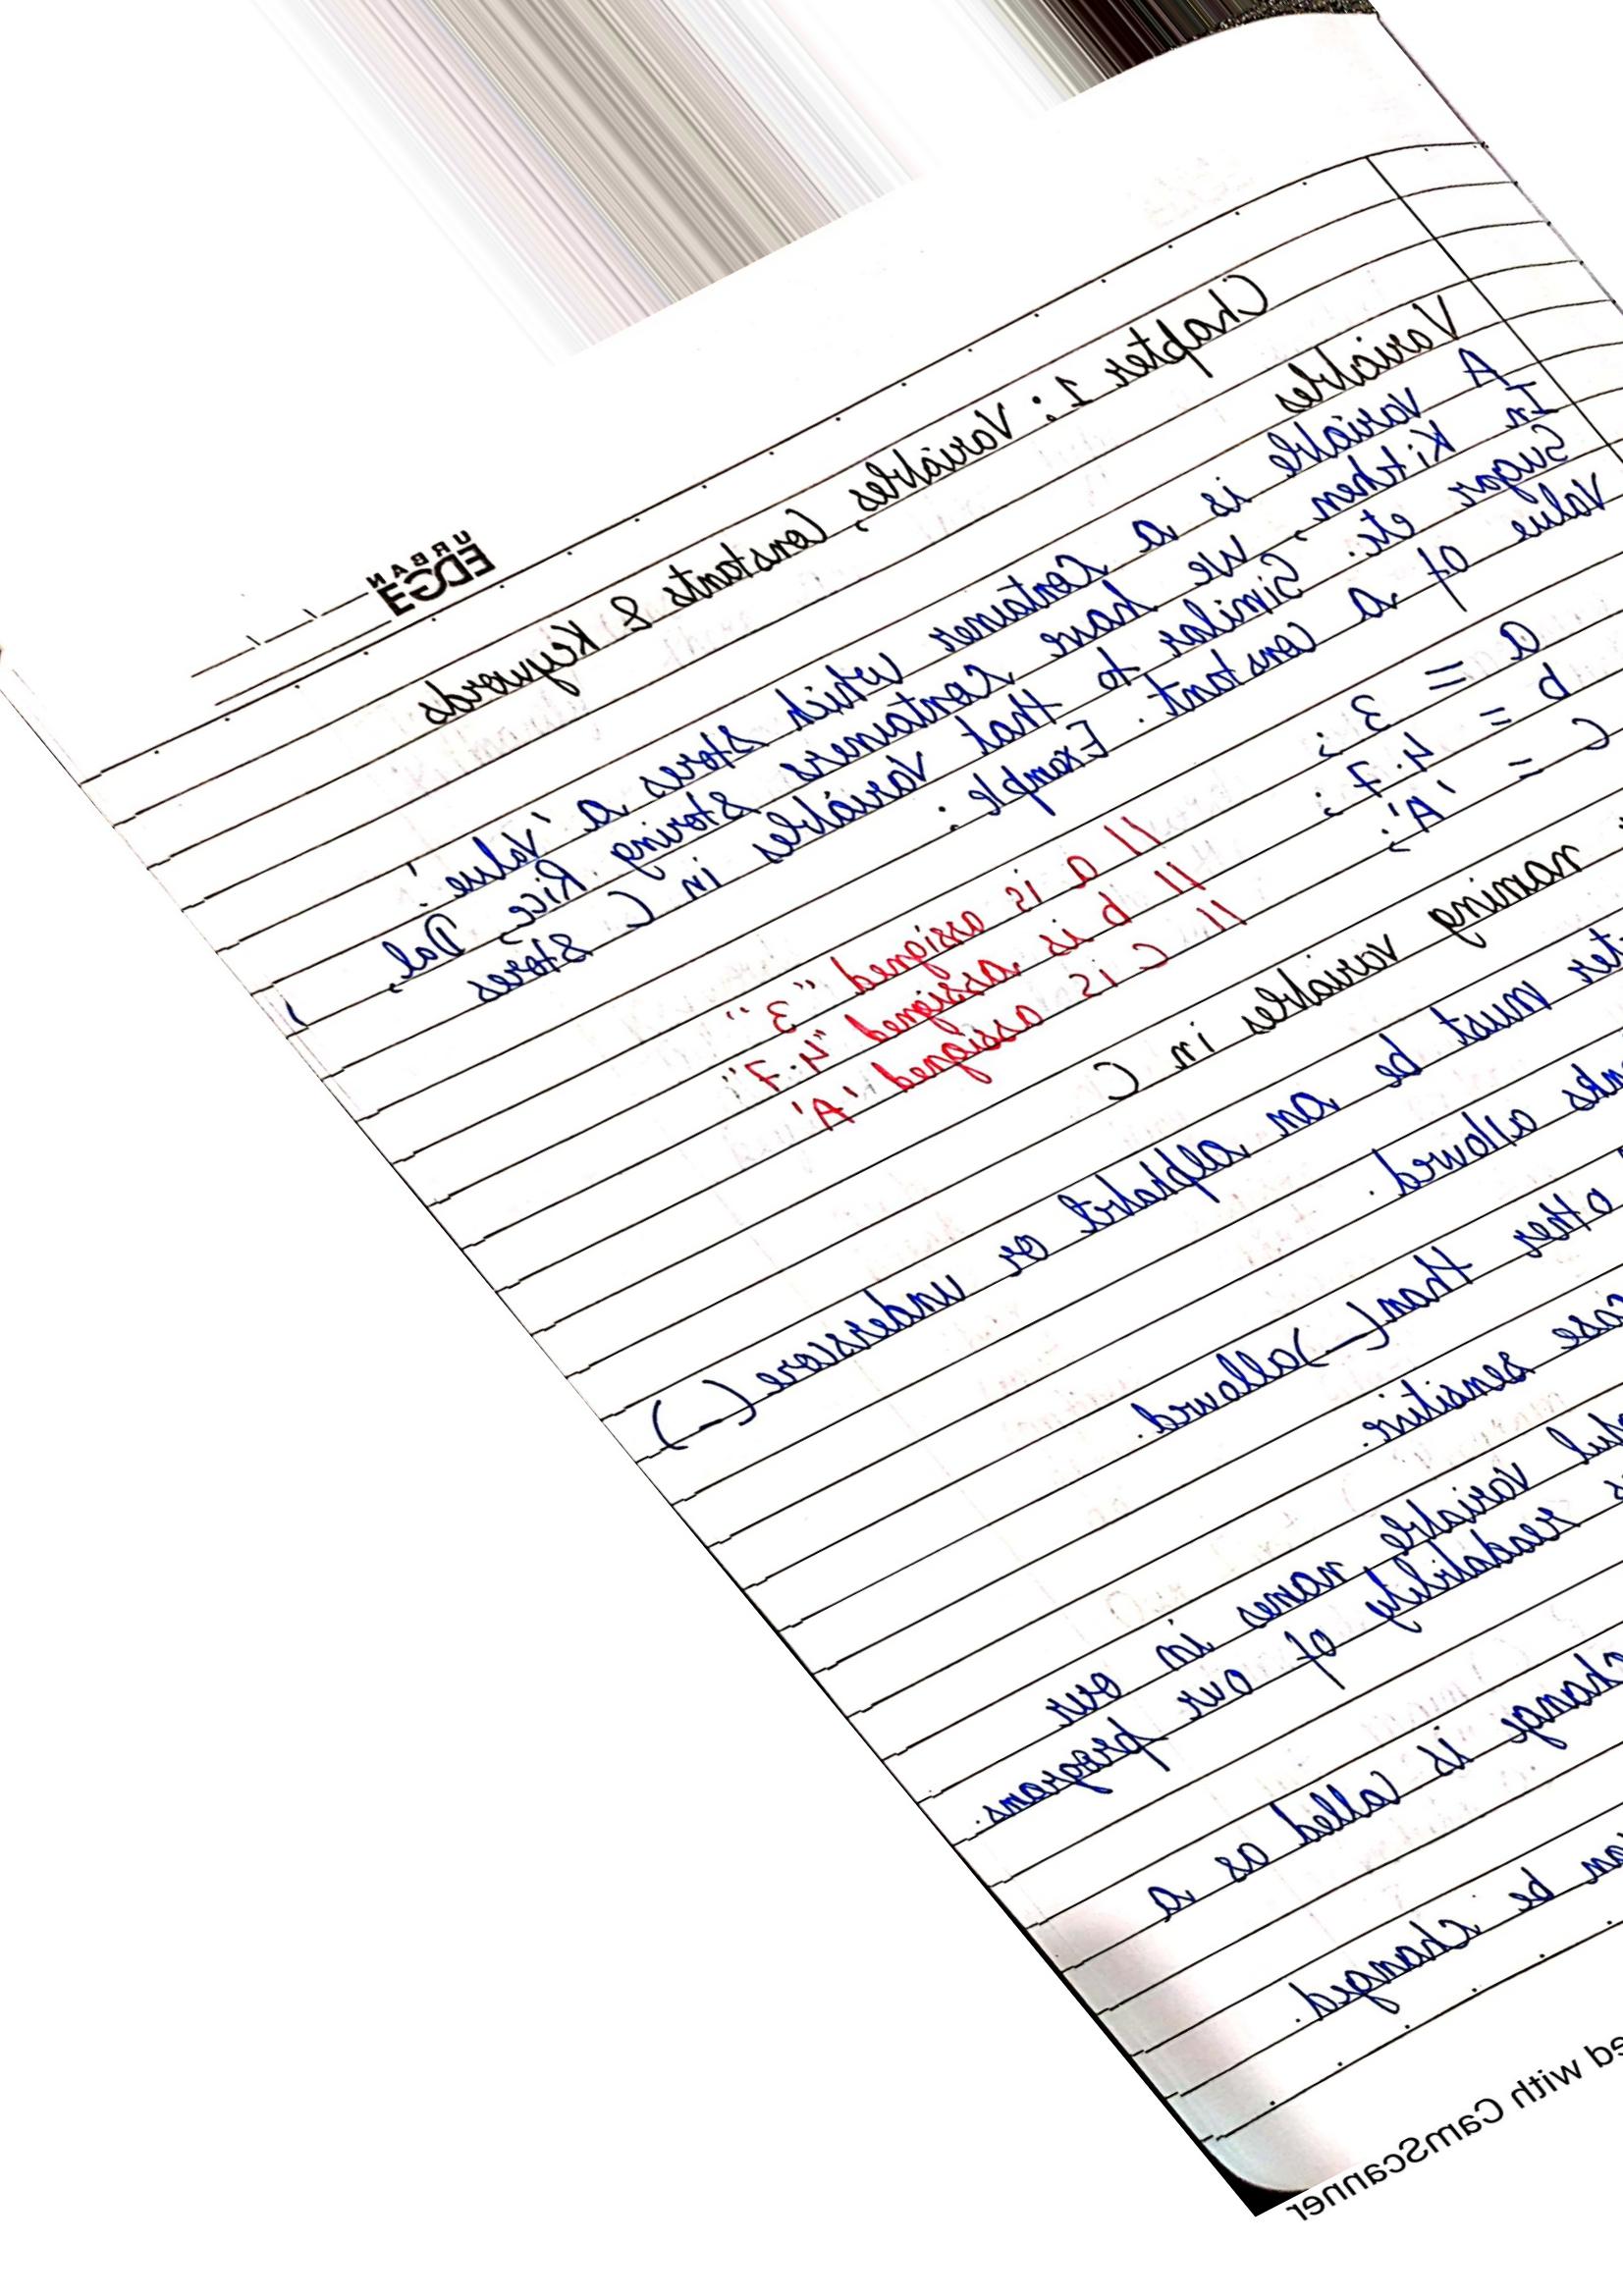 URBAN
EDGE
Chapter 1: Variables, Constants & Keywords
Variables
A variable is a Container which Stores a 'Value'.
In Kitchen, we have Containers Storing Rice, Dal,
Sugar etc. Similar to that Variables in C Stores
Value of a constant. Example:
a = 3; // a is assigned "3"
b = 4.7; // b is assigned "4.7"
C = 'A'; // C is assigned 'A'
naming variables in C
must be an alphabet or underscore (_)
allowed.
other than (_) allowed.
sensitive.
variable names in our
readability of our programs.
change is called as a
be changed.
with CamScanner